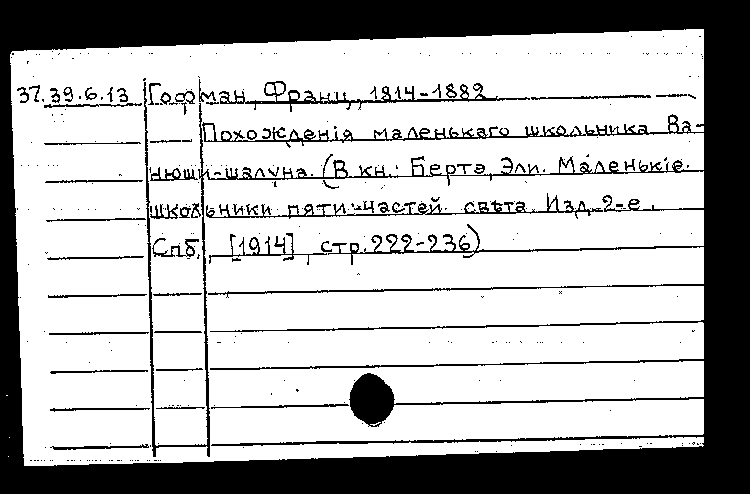 37.39.6.13 Гофман, Франц, 1814-1882.
Похожденія маленькаго школьника Ва-
нюши-шалуна. (В кн.: Бертэ, Эли. Маленькіе
школьники пяти частей свѣта. Изд. 2-е.
Спб., [1914], стр. 222-236)